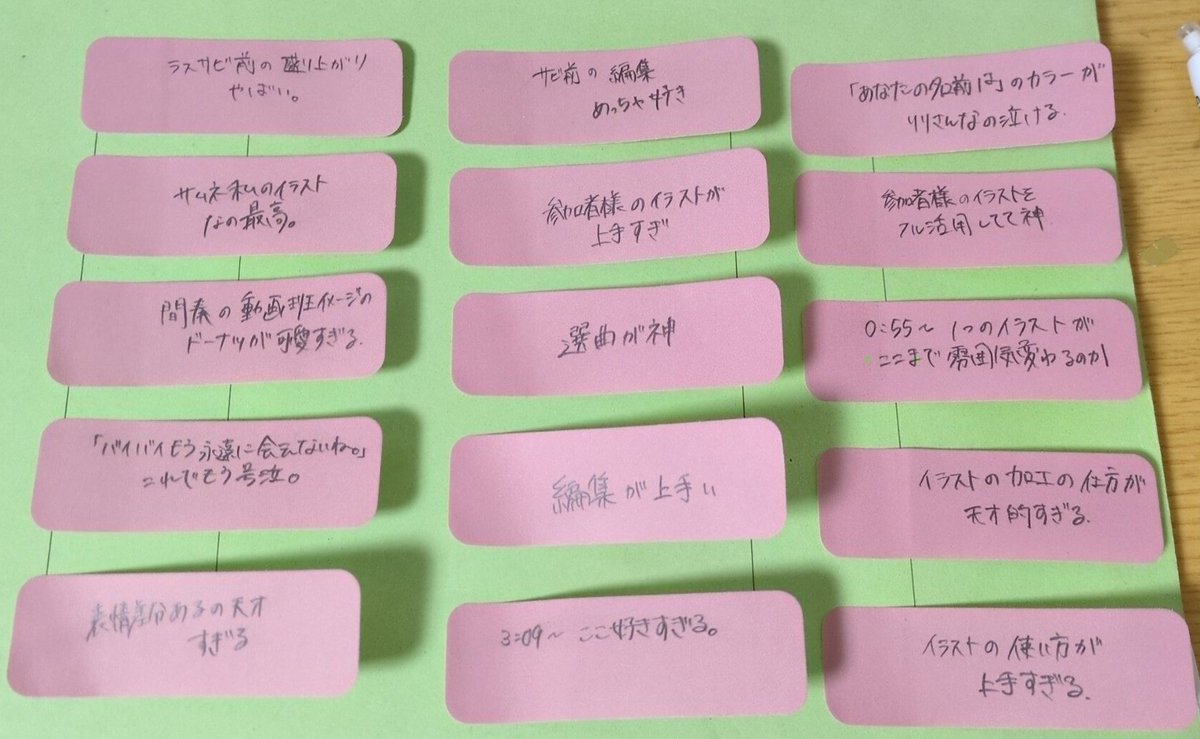 ラスサビ前の盛り上がり
やばい。
サムネ私のイラスト
なの最高。
間奏の動画班イメージの
ドーナツが可愛すぎる.
「バイバイもう永遠に会えないね。」
これでもう号泣。
表情差分あるの天才
すぎる
サビ前の編集
めっちゃ好き
参加者様のイラストが
上手すぎ
選曲が神
編集が上手い
3:09〜 ここ好きすぎる。
「あなたの名前は」のカラーが
リリさんなの泣ける.
参加者様のイラストを
フル活用してて神
0:55〜 1つのイラストが
ここまで雰囲気変わるのか
イラストの加工の仕方が
天才的すぎる.
イラストの使い方が
上手すぎる.